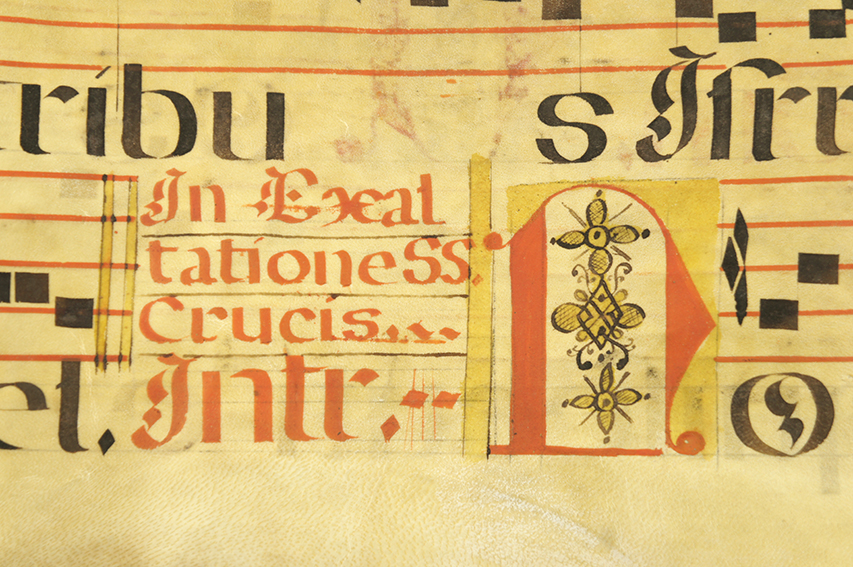 tribu s Isr
In Exal
tatione SS.
Crucis...
el. Intr. No